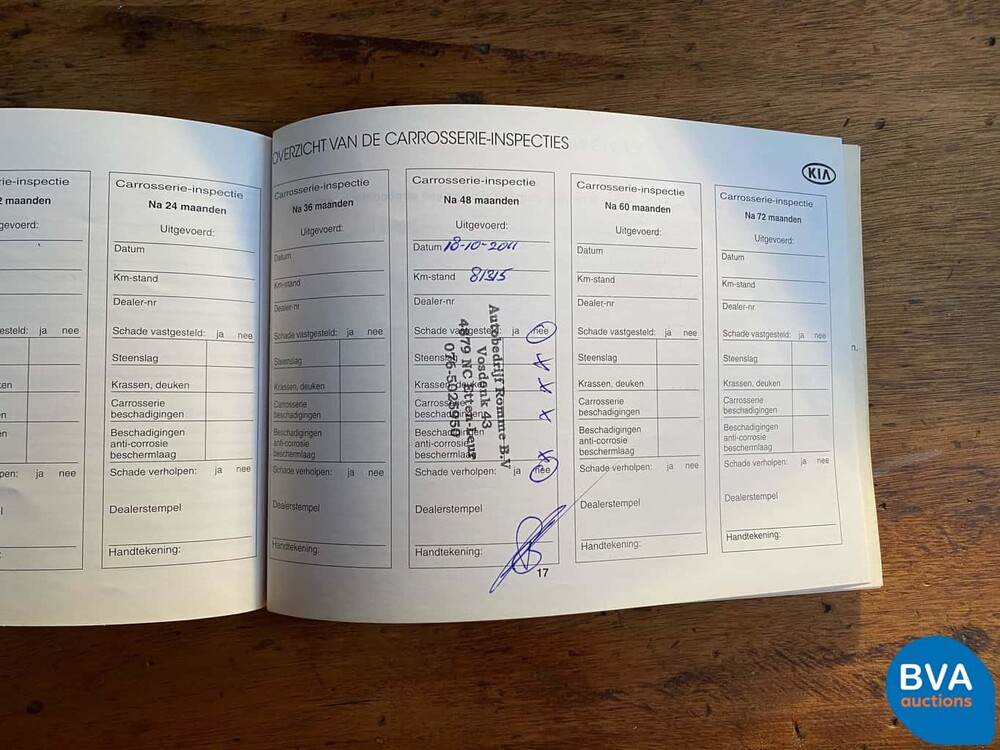 OVERZICHT VAN DE CARROSSERIE-INSPECTIES
KIA
ie-inspectie
2 maanden
gevoerd:
gesteld: ja nee
ken
en
pen: ja nee
Carrosserie-inspectie
Na 24 maanden
Uitgevoerd:
Datum
Km-stand
Dealer-nr
Schade vastgesteld: ja nee
Steenslag
Krassen, deuken
Carrosserie
beschadigingen
Beschadigingen
anti-corrosie
beschermlaag
Schade verholpen: ja nee
Dealerstempel
Handtekening:
Carrosserie-inspectie
Na 36 maanden
Uitgevoerd:
Datum
Km-stand
Dealer-nr
Schade vastgesteld: ja nee
Steenslag
Krassen, deuken
Carrosserie
beschadigingen
Beschadigingen
anti-corrosie
beschermlaag
Schade verholpen: ja nee
Dealerstempel
Handtekening:
Carrosserie-inspectie
Na 48 maanden
Uitgevoerd:
Datum 18-10-2011
Km-stand 81315
Dealer-nr
Schade vastgesteld: ja nee
Steenslag
Krassen, deuken
Carrosserie
beschadigingen
Beschadigingen
anti-corrosie
beschermlaag
Schade verholpen: ja nee
Dealerstempel
Handtekening:
Autobedrijf Romme B.V
Vosdonk 43
4879 NC Etten-Leur
076-5025950
Carrosserie-inspectie
Na 60 maanden
Uitgevoerd:
Datum
Km-stand
Dealer-nr
Schade vastgesteld: ja nee
Steenslag
Krassen, deuken
Carrosserie
beschadigingen
Beschadigingen
anti-corrosie
beschermlaag
Schade verholpen: ja nee
Dealerstempel
Handtekening:
Carrosserie-inspectie
Na 72 maanden
Uitgevoerd:
Datum
Km-stand
Dealer-nr
Schade vastgesteld: ja nee
Steenslag
Krassen, deuken
Carrosserie
beschadigingen
Beschadigingen
anti-corrosie
beschermlaag
Schade verholpen: ja nee
Dealerstempel
Handtekening:
n.
17
BVA
auctions